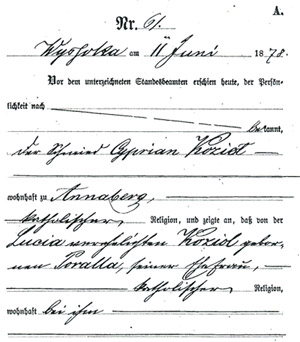 A.
Nr. 61.
Wyssoka am 11 Juni 1878.
Vor dem unterzeichneten Standesbeamten erschien heute, der Persön-
lichkeit nach
bekannt,
der Schmied Cyprian Koziol
wohnhaft zu Annaberg,
katholischer Religion, und zeigte an, daß von der
Lucia verehelichten Koziol gebor-
nen Poralla, seiner Ehefrau,
katholischer Religion,
wohnhaft bei ihm